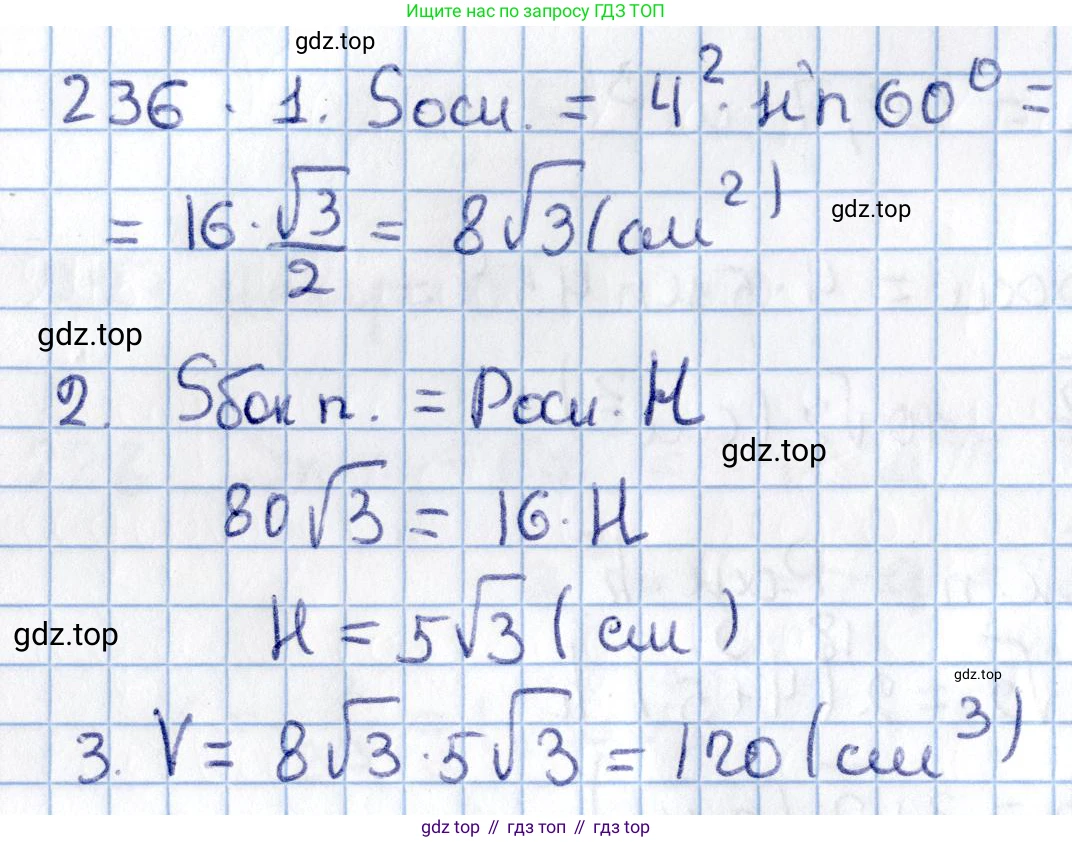 Ищите нас по запросу ГДЗ ТОП
gdz.top
236. 1. Sосн. = 4² · sin 60⁰ =
= 16 · √3/2 = 8√3 (см²)
gdz.top
gdz.top
2. Sбок п. = Pосн · H
gdz.top
80√3 = 16 · H
H = 5√3 (см)
gdz.top
gdz.top
3. V = 8√3 · 5√3 = 120 (см³)
gdz top // гдз топ // gdz top